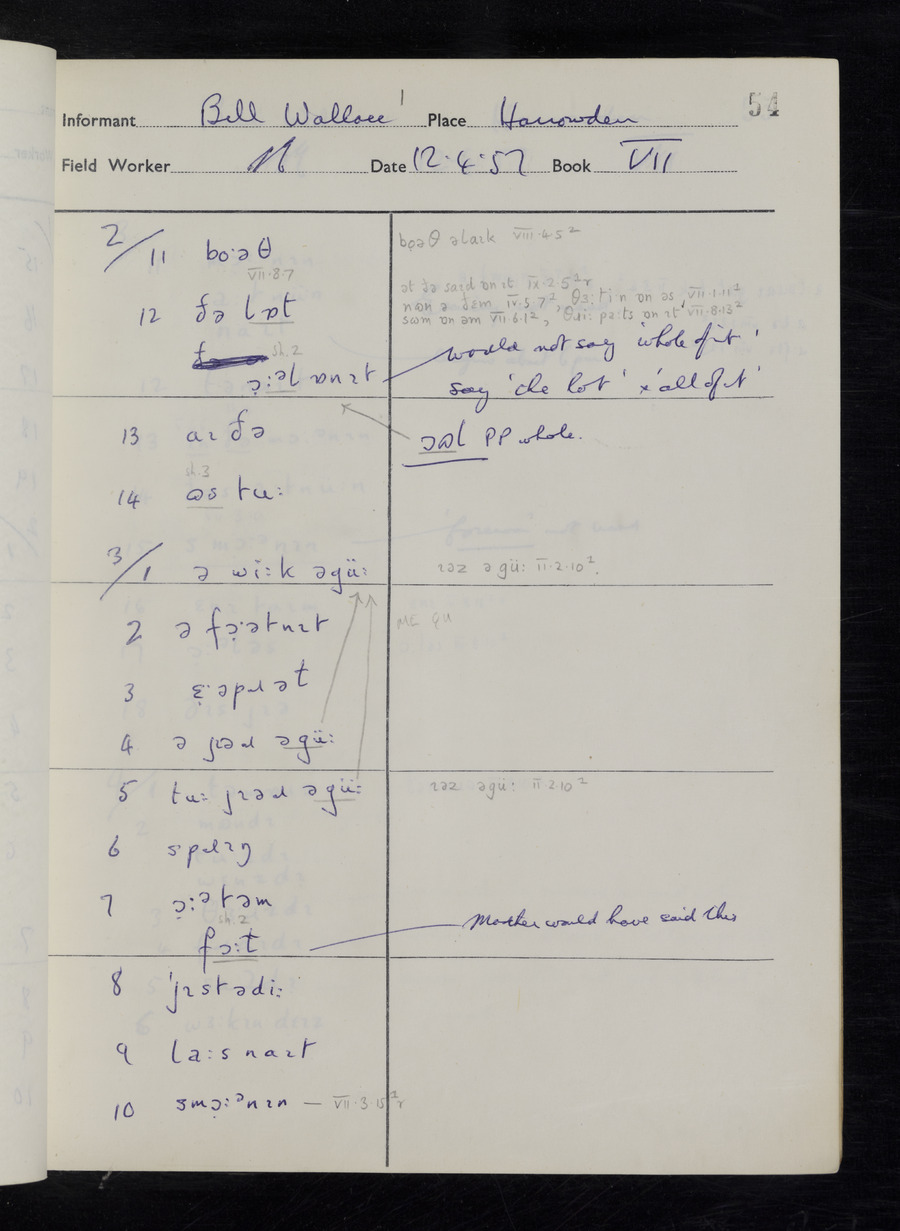 54
Informant Bill Wallace Place Harrowden
Field Worker Date 12·4·57 Book VII
2/11 bo·əθ
bo̞əθ əlaɪk VIII·4·5²
VII·8·7
12 ðə lɒt
ət ðə saɪd ɒn ɪt IX·2·5²r
nɒn ə ðɛm IV·5·7², θɜ:ti:n ɒn əs VII·1·11¹
sʊm ɒn əm VII·6·12, θɹi: pa:ts ɒn ɪt VII·8·13²
sh.2
ɔ̞:əl ɒnɪt
would not say 'whole of it'
say 'the lot' x 'all of it'
13 aɪ ðə
ɔʊl PP whole.
sh.3
14 ʊs tu:
3/1 ə wi:k əgü:
ɪəz əgü: II·2·10².
2 ə fɔ̞:ətnɪt
ME gu
3 ɛ̞:əpɹət
4 ə jɪəɹ əgü:
5 tu: jɪəɹ əgü:
ɪəz əgü: II 2·10²
6 spɹɪŋ
7 ɔ̞:ətəm
sh.2
fɔ:t
Mother would have said this
8 'jɪstədi:
9 la:s naɪt
10 smɔ̞:ənɪn — VII·3·15²r